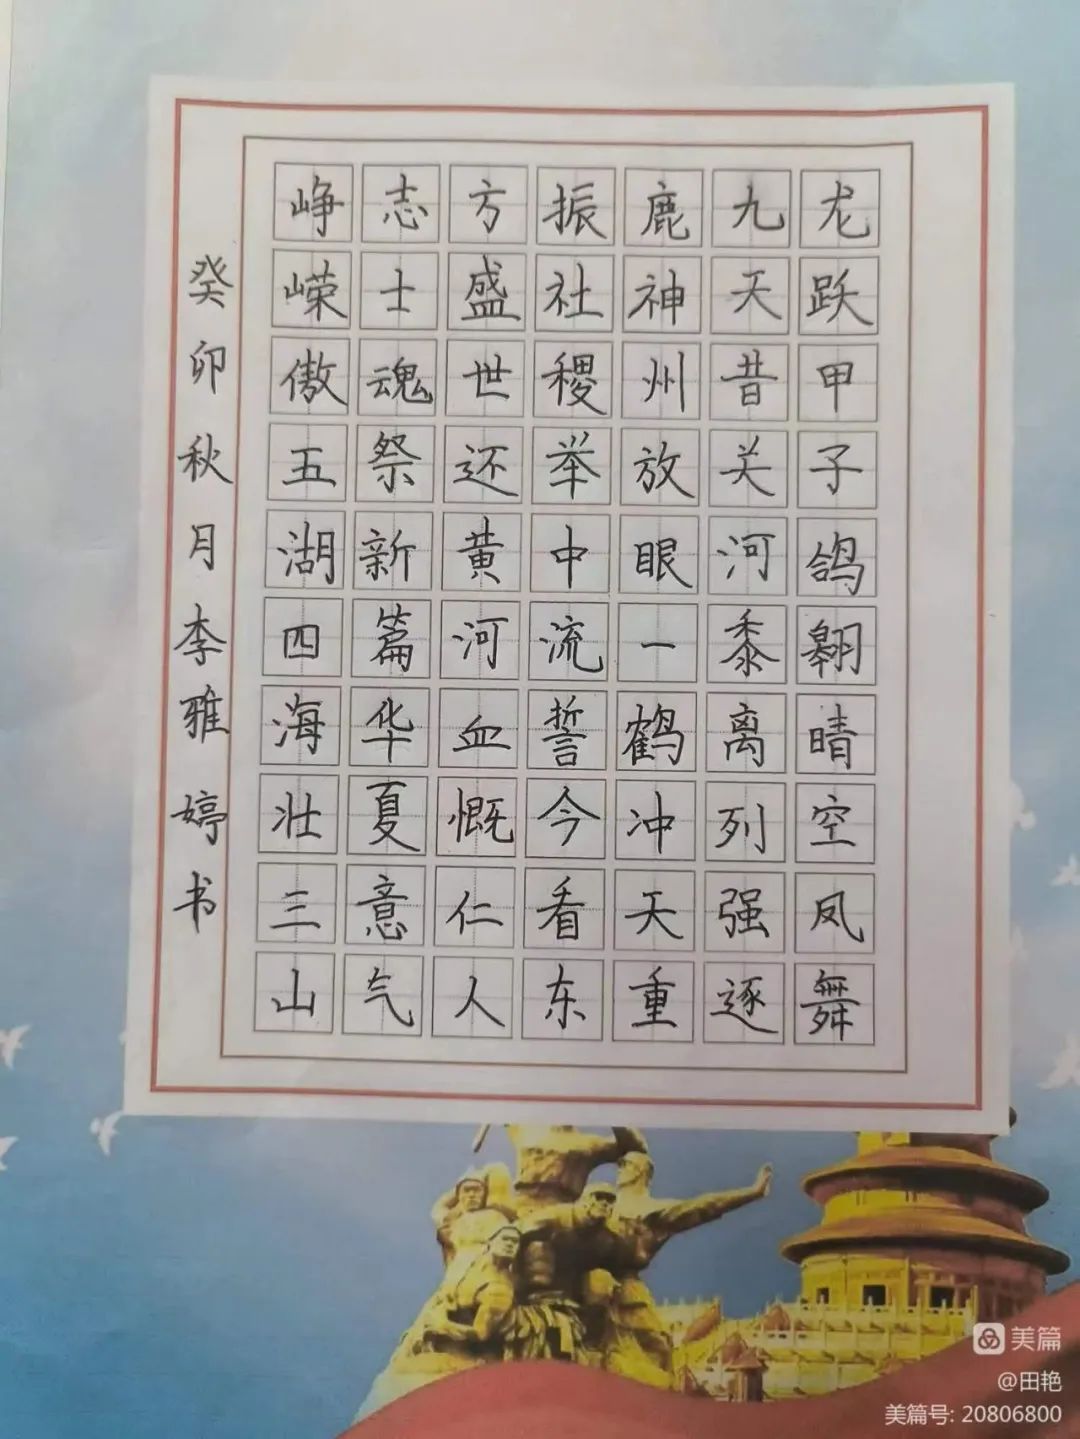 龙跃甲子鸽翱晴空凤舞
九天昔关河黎离列强逐
鹿神州放眼一鹤冲天重
振社稷举中流誓今看东
方盛世还黄河血慨仁人
志士魂祭新篇华夏意气
峥嵘傲五湖四海壮三山
癸卯秋月李雅婷书
美篇
@田艳
美篇号: 20806800